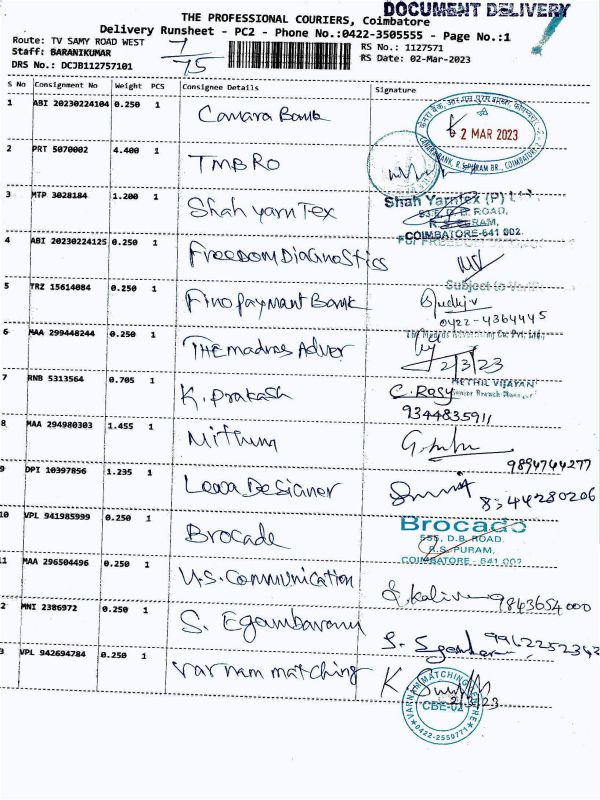 DOCUMENT DELIVERY
THE PROFESSIONAL COURIERS, Coimbatore
Delivery Runsheet - PC2 - Phone No.:0422-3505555 - Page No.:1
Route: TV SAMY ROAD WEST
Staff: BARANIKUMAR
DRS No.: DCJB112757101
7/75
RS No.: 1127571
RS Date: 02-Mar-2023
S No Consignment No Weight PCS Consignee Details Signature
1 ABI 20230224104 0.250 1 Canara Bank
2 MAR 2023
2 PRT 5070002 4.400 1 TMB RO
3 MTP 3028184 1.200 1 Shah yarn Tex
Shah Yarntex (P)
D. B. ROAD,
R.S. PURAM,
COIMBATORE-641 002
4 ABI 20230224125 0.250 1 Freedom Diagnostics
For FREEDOM
Subject to
5 TRZ 15614084 0.250 1 Fino payment Bank
0422-4364445
6 MAA 299448244 0.250 1 THE madras Adver
2/3/23
7 RNB 5313564 0.705 1 K. prakash
METHIL VIJAYAN
Senior Branch Manager
C. Rosy
9344835911
8 MAA 294980303 1.455 1 Mithun
9894744277
9 DPI 10397856 1.235 1 Leora Designer
8344280206
10 VPL 941985999 0.250 1 Brocade
Brocade
555, D.B. ROAD
R.S. PURAM,
COIMBATORE - 641 002
11 MAA 296504496 0.250 1 U.S. Communication
9843654000
2 MNI 2386972 0.250 1 S. Egambaram
3 VPL 942694784 0.250 1 varnam matching
2/3/23
VARNAM MATCHING CENTRE
CBE-02
0422-2550771